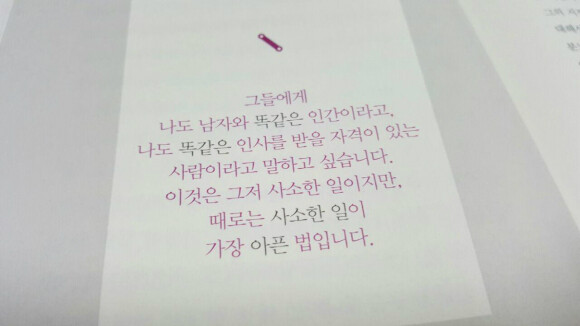 그들에게
나도 남자와 똑같은 인간이라고,
나도 똑같은 인사를 받을 자격이 있는
사람이라고 말하고 싶습니다.
이것은 그저 사소한 일이지만,
때로는 사소한 일이
가장 아픈 법입니다.